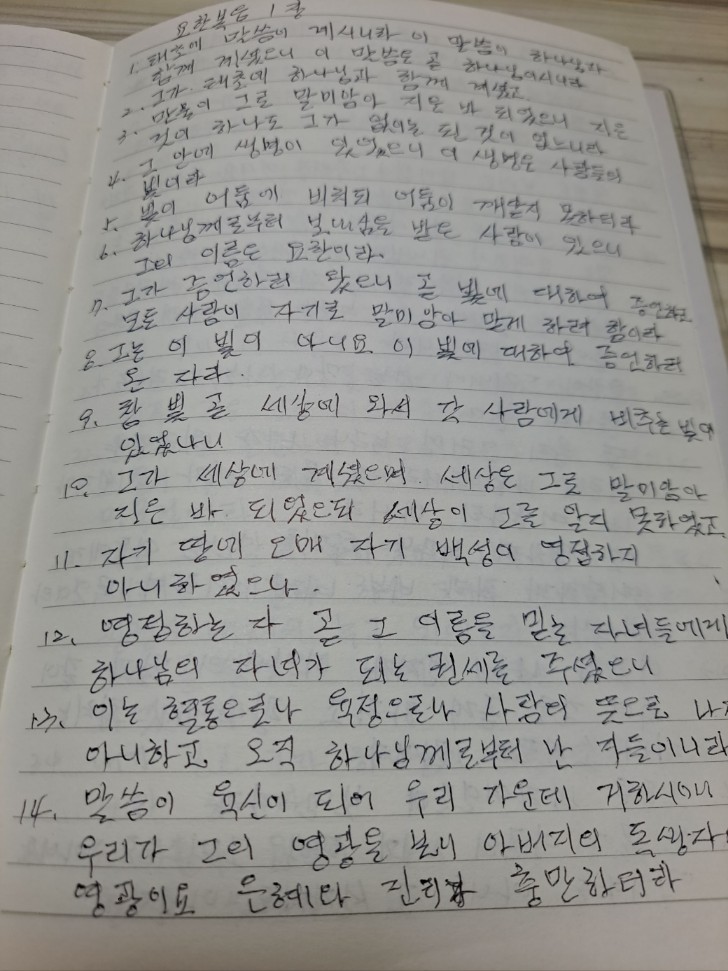 요한복음 1장
1. 태초에 말씀이 계시니라 이 말씀이 하나님과
함께 계셨으니 이 말씀은 곧 하나님이시니라
2. 그가 태초에 하나님과 함께 계셨고
3. 만물이 그로 말미암아 지은 바 되었으니 지은
것이 하나도 그가 없이는 된 것이 없느니라
4. 그 안에 생명이 있었으니 이 생명은 사람들의
빛이라
5. 빛이 어둠에 비취되 어둠이 깨닫지 못하더라
6. 하나님께로부터 보내심을 받은 사람이 있으니
그의 이름은 요한이라.
7. 그가 증언하러 왔으니 곧 빛에 대하여 증언하고
모든 사람이 자기로 말미암아 믿게 하려 함이라
8. 그는 이 빛이 아니요 이 빛에 대하여 증언하러
온 자라.
9. 참 빛 곧 세상에 와서 각 사람에게 비추는 빛이
있었나니
10. 그가 세상에 계셨으며 세상은 그로 말미암아
지은 바 되었으되 세상이 그를 알지 못하였고
11. 자기 땅에 오매 자기 백성이 영접하지
아니하였으나.
12. 영접하는 자 곧 그 이름을 믿는 자녀들에게
하나님의 자녀가 되는 권세를 주셨으니
13. 이는 혈통으로나 육정으로나 사람의 뜻으로 나지
아니하고 오직 하나님께로부터 난 자들이니라
14. 말씀이 육신이 되어 우리 가운데 거하시매
우리가 그의 영광을 보니 아버지의 독생자의
영광이요 은혜와 진리가 충만하더라